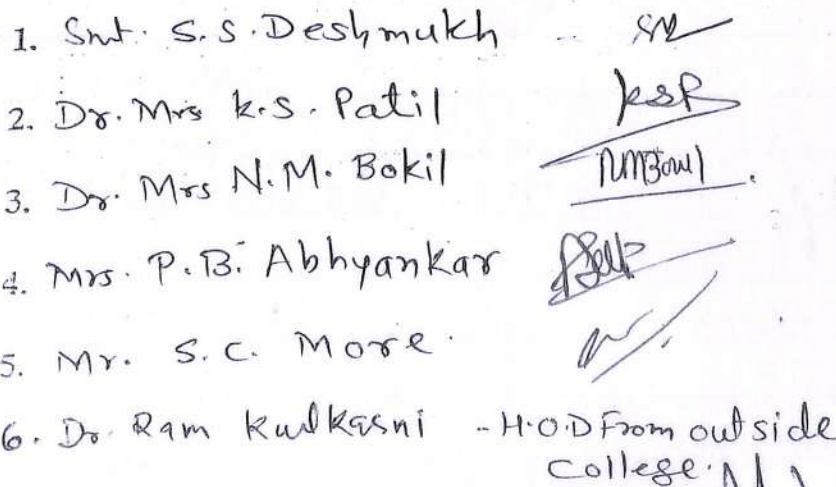 1. Smt. S.S. Deshmukh
2. Dr. Mrs K.S. Patil
3. Dr. Mrs N.M. Bokil
4. Mrs. P.B. Abhyankar
5. Mr. S.C. More.
6. Dr. Ram Kulkarni - H.O.D From outside
College.